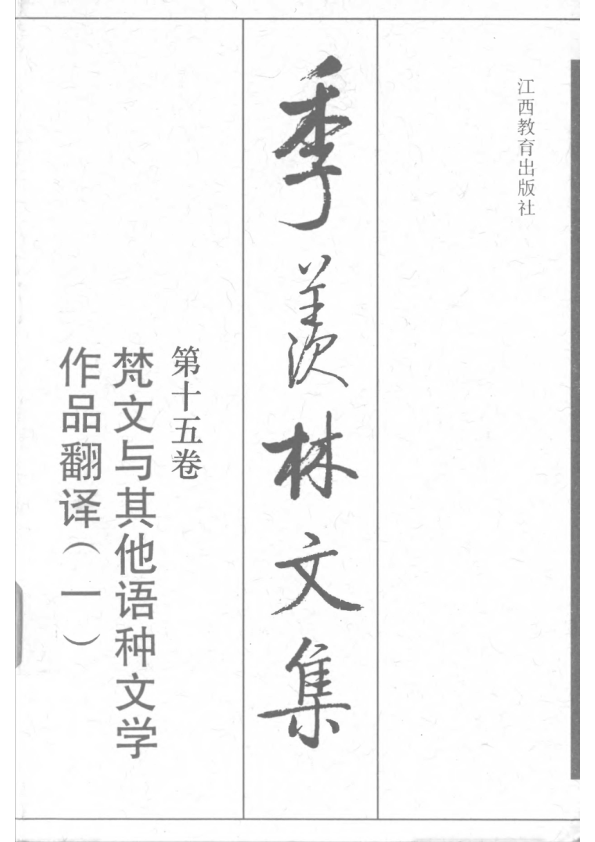 江西教育出版社
季羡林文集
第十五卷
梵文与其他语种文学
作品翻译（一）